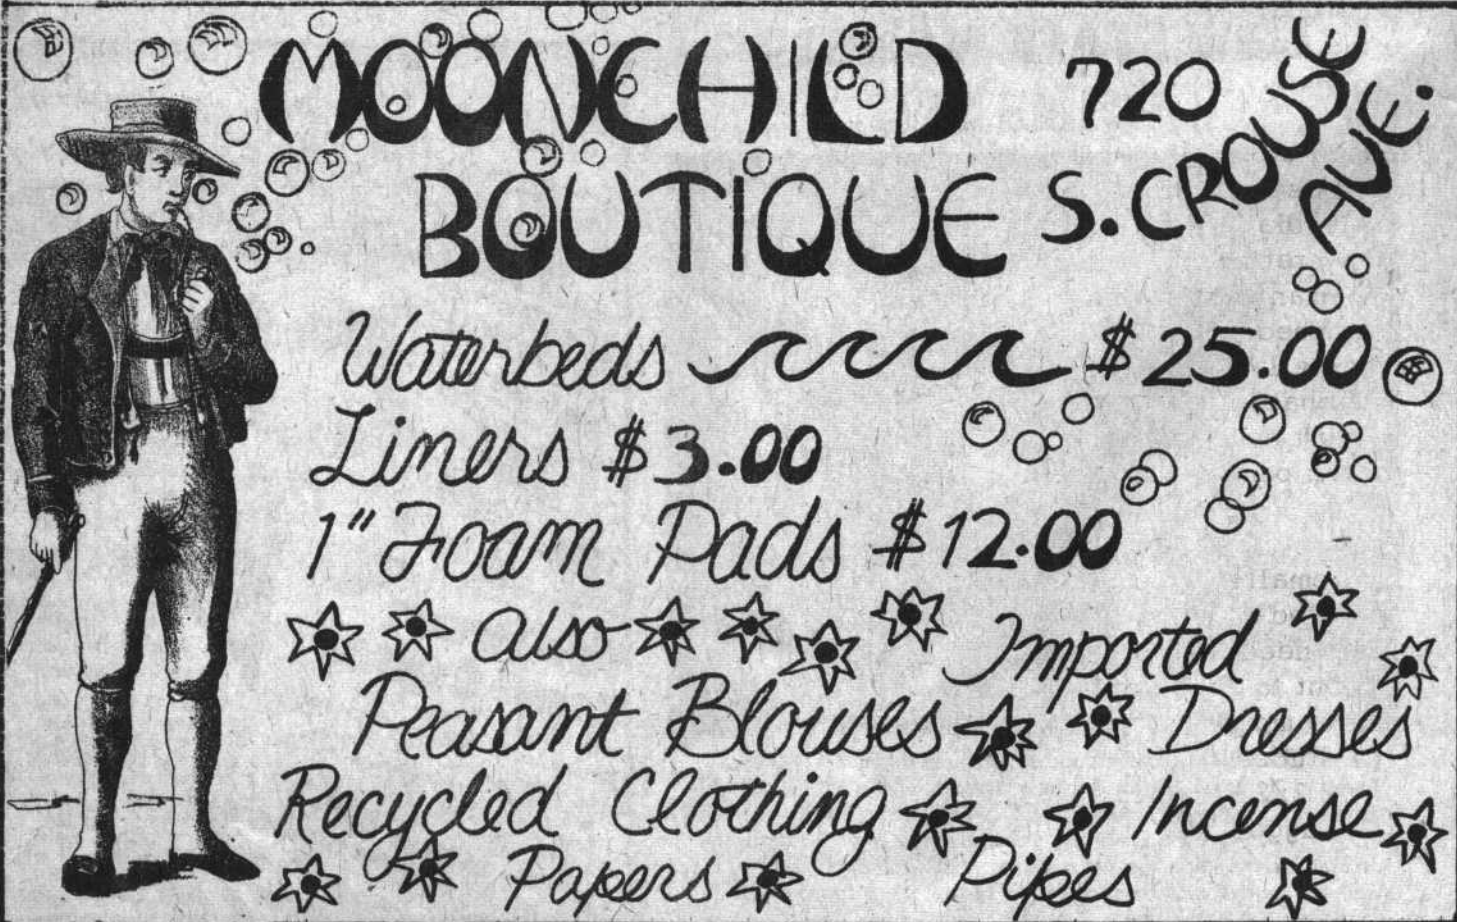 MOONCHILD 720
BOUTIQUE S. CROUSE AVE.
Waterbeds $25.00
Liners $3.00
1" Foam Pads $12.00
Also Imported
Peasant Blouses Dresses
Recycled Clothing Incense
Papers Pipes